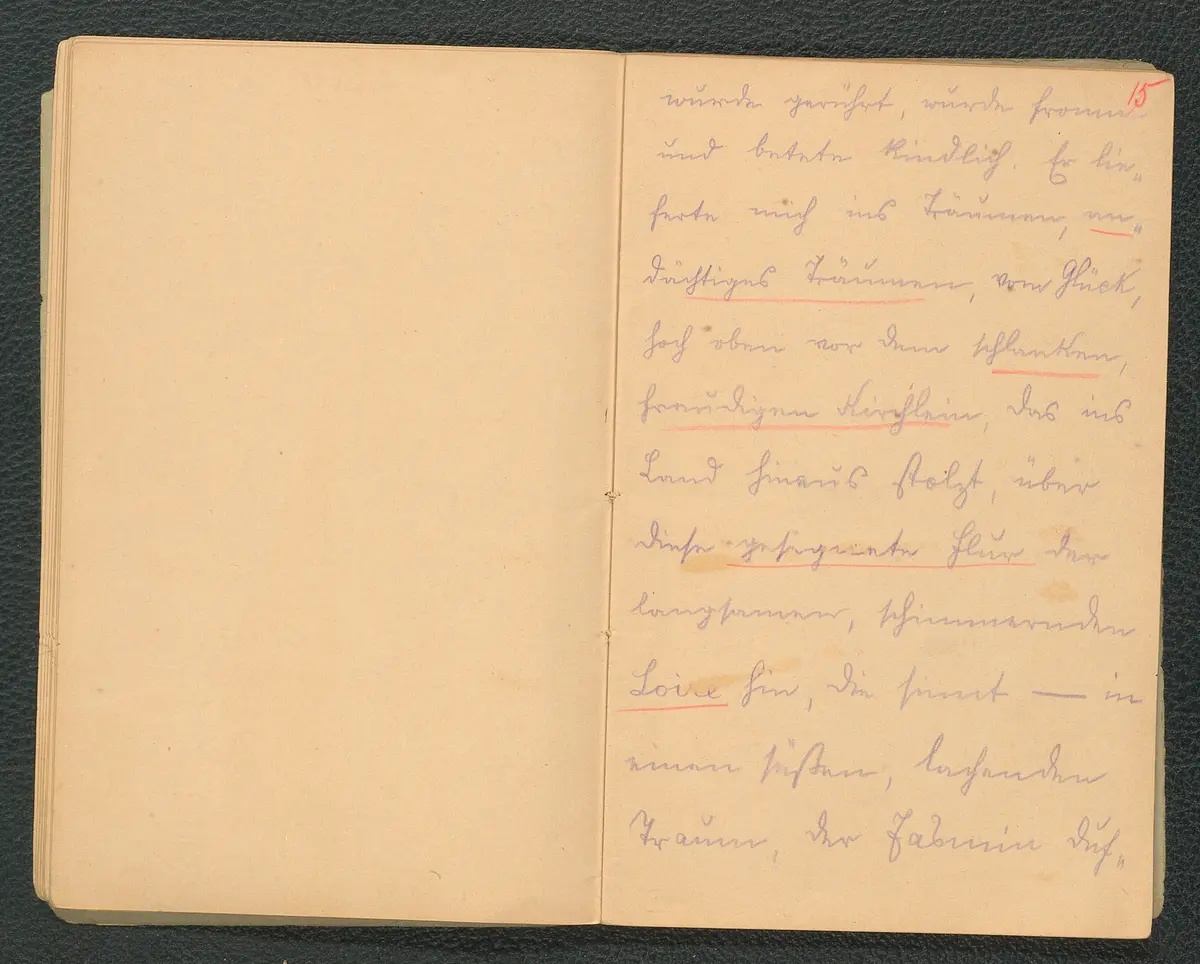 15
wurde gerührt, wurde fromm
und betete kindlich. Er lie„
ferte mich ins Träumen, an„
dächtiges Träumen, vom Glück,
hoch oben vor dem schlanken,
freudigen Kirchlein, das ins
Land hinaus stolzt, über
diese gesegnete Flur der
langsamen, schimmernden
Loire hin, die sinnt — in
einen süßen, lachenden
Traum, der Jasmin duf„